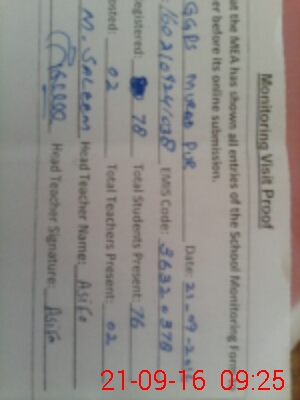 Monitoring Visit Proof
at the MEA has shown all entries of the School Monitoring Form
er before its online submission.
GGPS MURAD PUR Date: 21-09-2016
EMIS Code: 36320378
egistered: 78 Total Students Present: 76
osted: 02 Total Teachers Present: 02
M. SALEEM Head Teacher Name: Asifa
Head Teacher Signature: Asifa
21-09-16 09:25